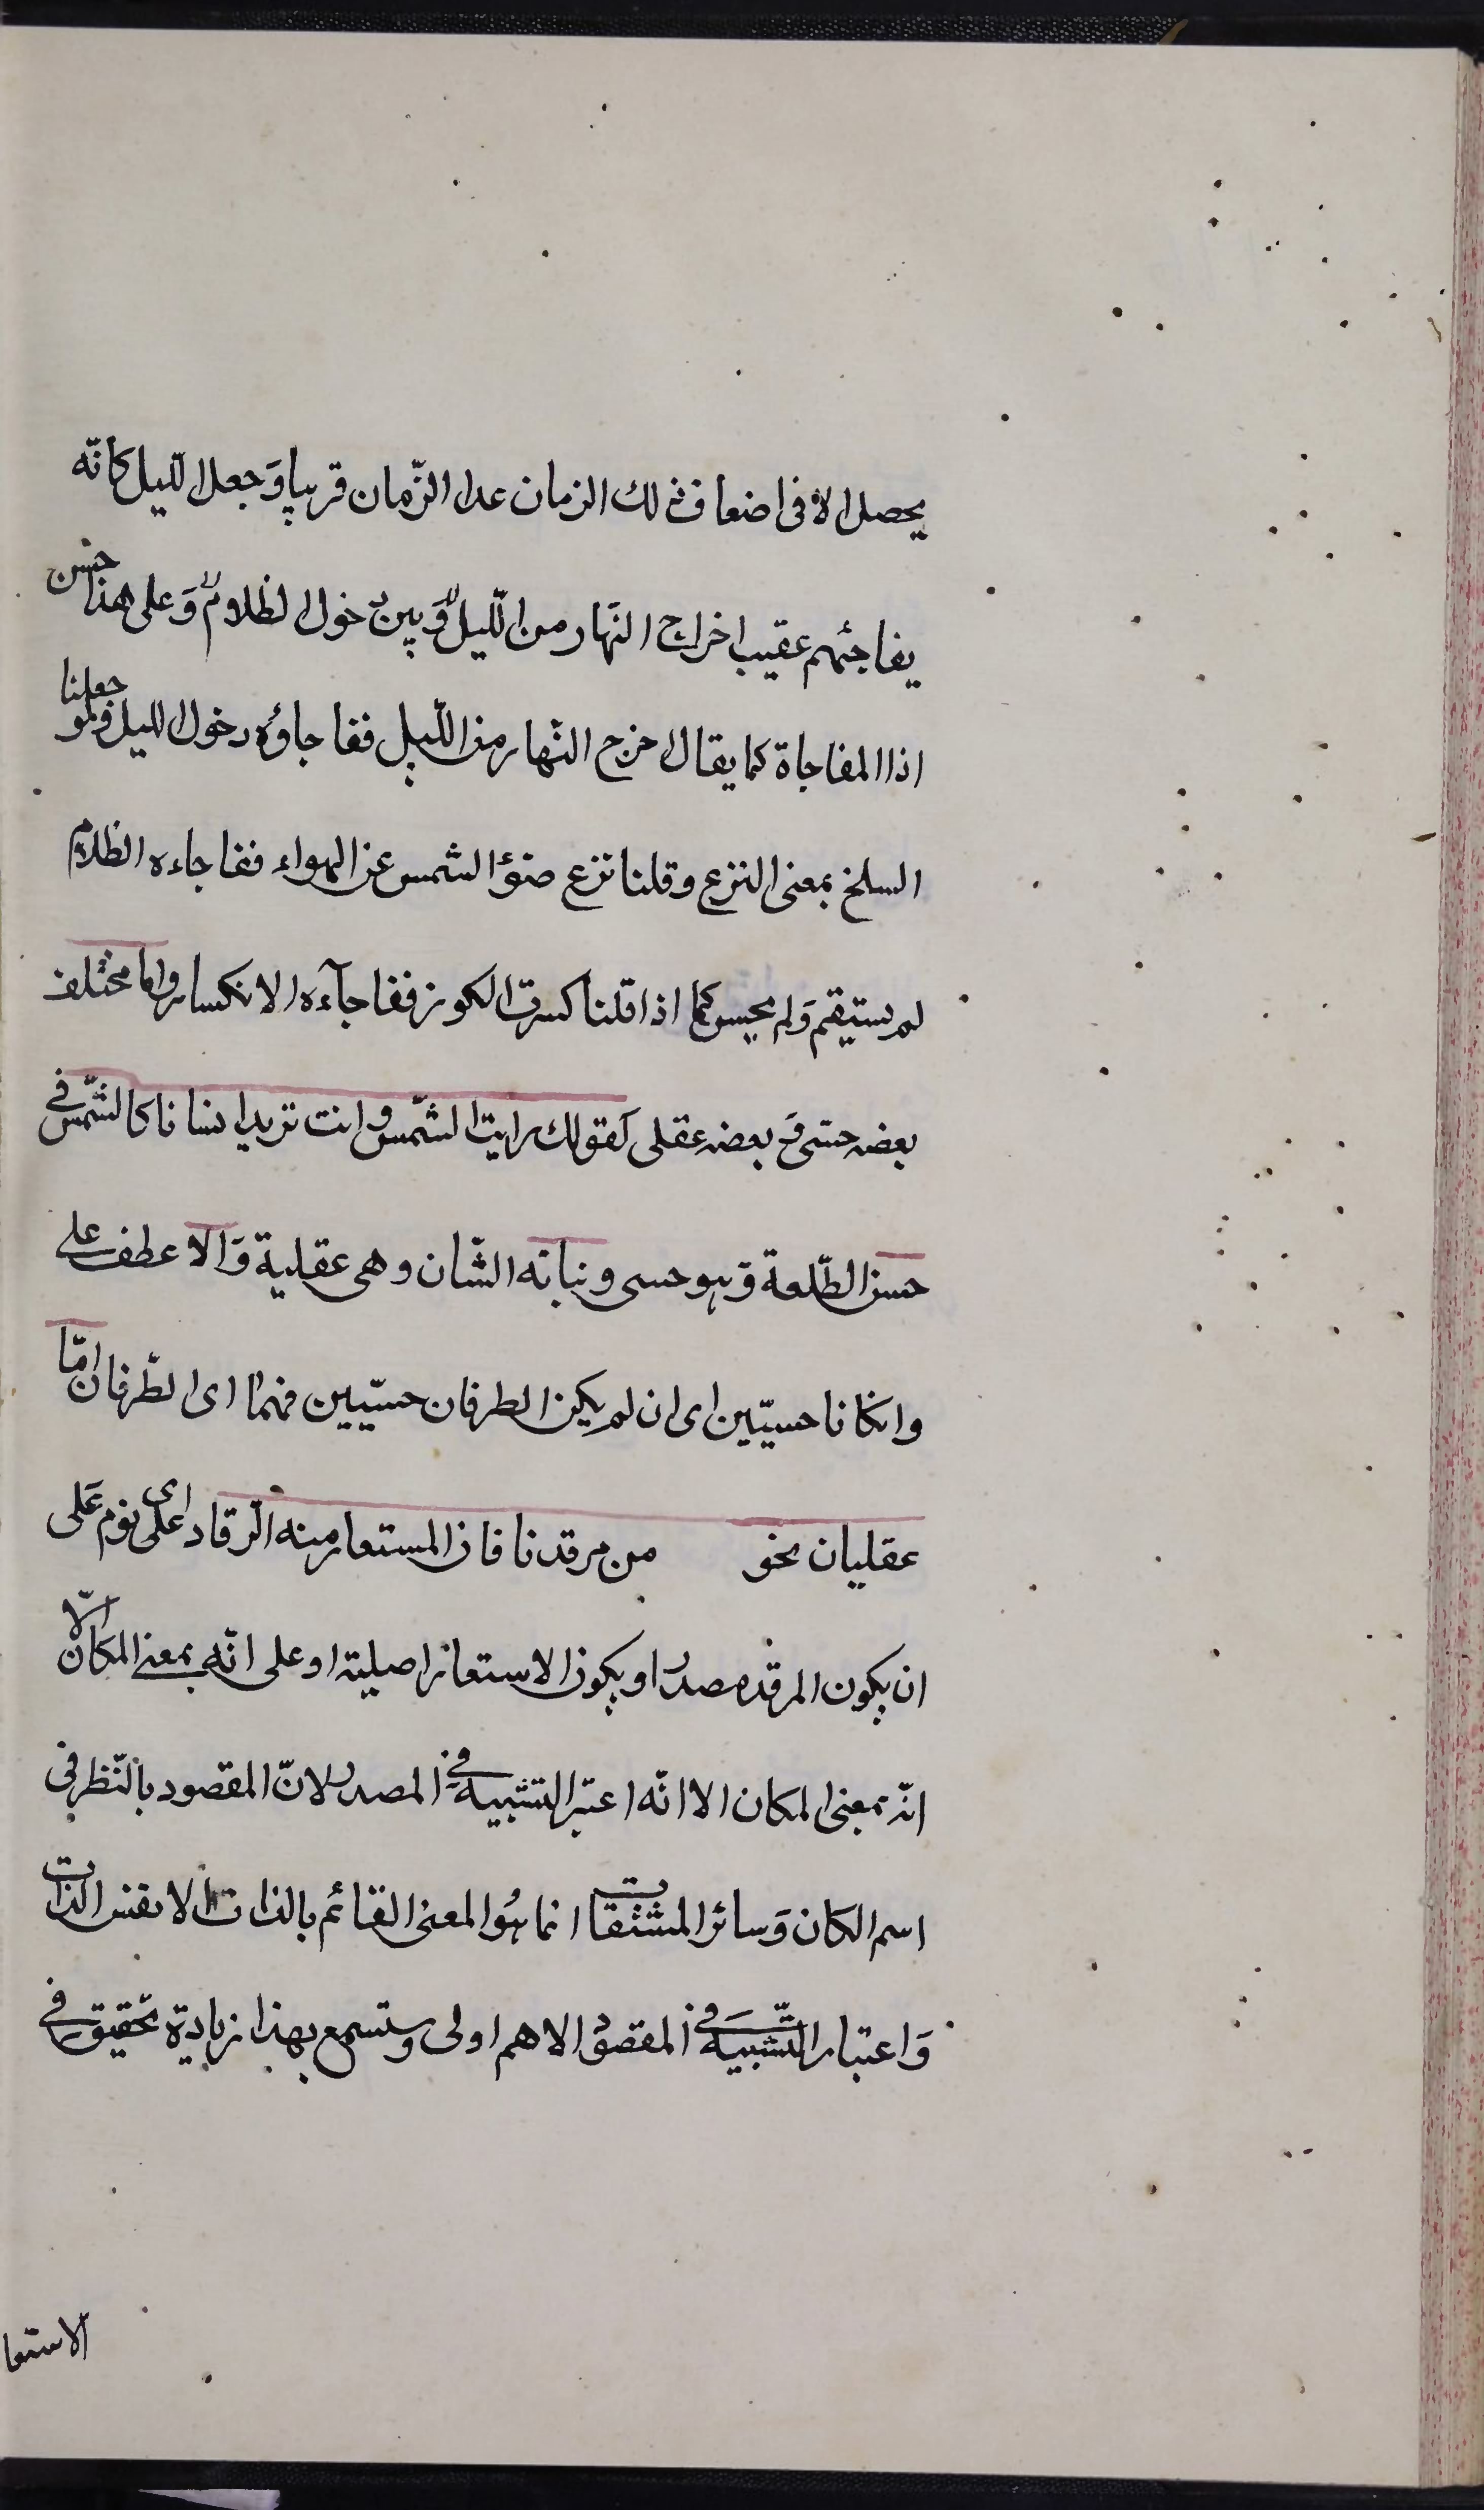 يحصل الا فى اضعاف ذلك الزمان عدا الزّمان قريبا وَجعل اللّيل كانّه
يفاجئهم عقيب اخراج النّهار من اللّيل وَبين دخول الظلام وَعلى هذا حسن
اذا المفاجاة كما يقال اخرج النّهار من اللّيل ففاجاؤه دخول الليل فلو جعلنا
السلخ بمعنى النزع وقلنا نزع ضوؤ الشمس عن الهواء ففاجاءه الظلام
لم يستقم وَلم يحسن كما اذا قلنا كسرت الكوز ففاجآءه الانكسار واما مختلف
بعضه حسّى وَ بعضه عقلى كقولك رايت الشّمس وانت تريد انسانا كالشّمس فى
حسن الطّلعة وَهو حسى ونباته الشّان وهى عقلية وَالا عطف على
وانكانا حسيّين اى ان لم يكن الطرفان حسّيين فهما اى الطّرفان امّا
عقليان نحو من مرقدنا فان المستعار منه الرّقاد اى على نوم عَلى
ان يكون المرقد مصدرا ويكون الاستعارة اصلية او على انّه بمعنى المكان الّا
انّه بمعنى المكان الا انّه اعتبر التشبيه فى المصدر لانّ المقصود بالنّظر فى
اسم الكان وَسائر المشتقات انما هُو المعنى القائم بالذات لا نفس الذات
وَاعتبار التّشبيه فى المقصود الاهم اولى وستسمع بهذا زيادة تحقيق فى
الاستعا